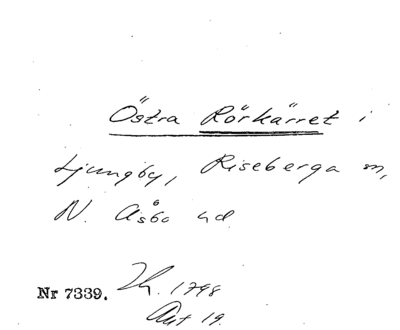 Östra Rörkärret i
Ljungby, Riseberga sn,
N. Åsbo hd
Nr 7339. Lh. 1798
Akt 19.